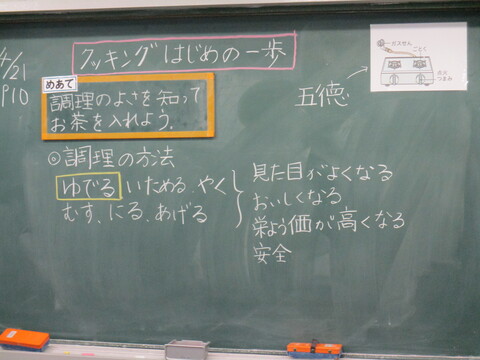 4/21
P10
クッキングはじめの一歩
めあて
調理のよさを知って
お茶を入れよう.
◎調理の方法
ゆでる いためる、やく
むす、にる、あげる
見た目がよくなる
おいしくなる
栄よう価が高くなる
安全
五徳
ガスせん
ごとく
点火
つまみ